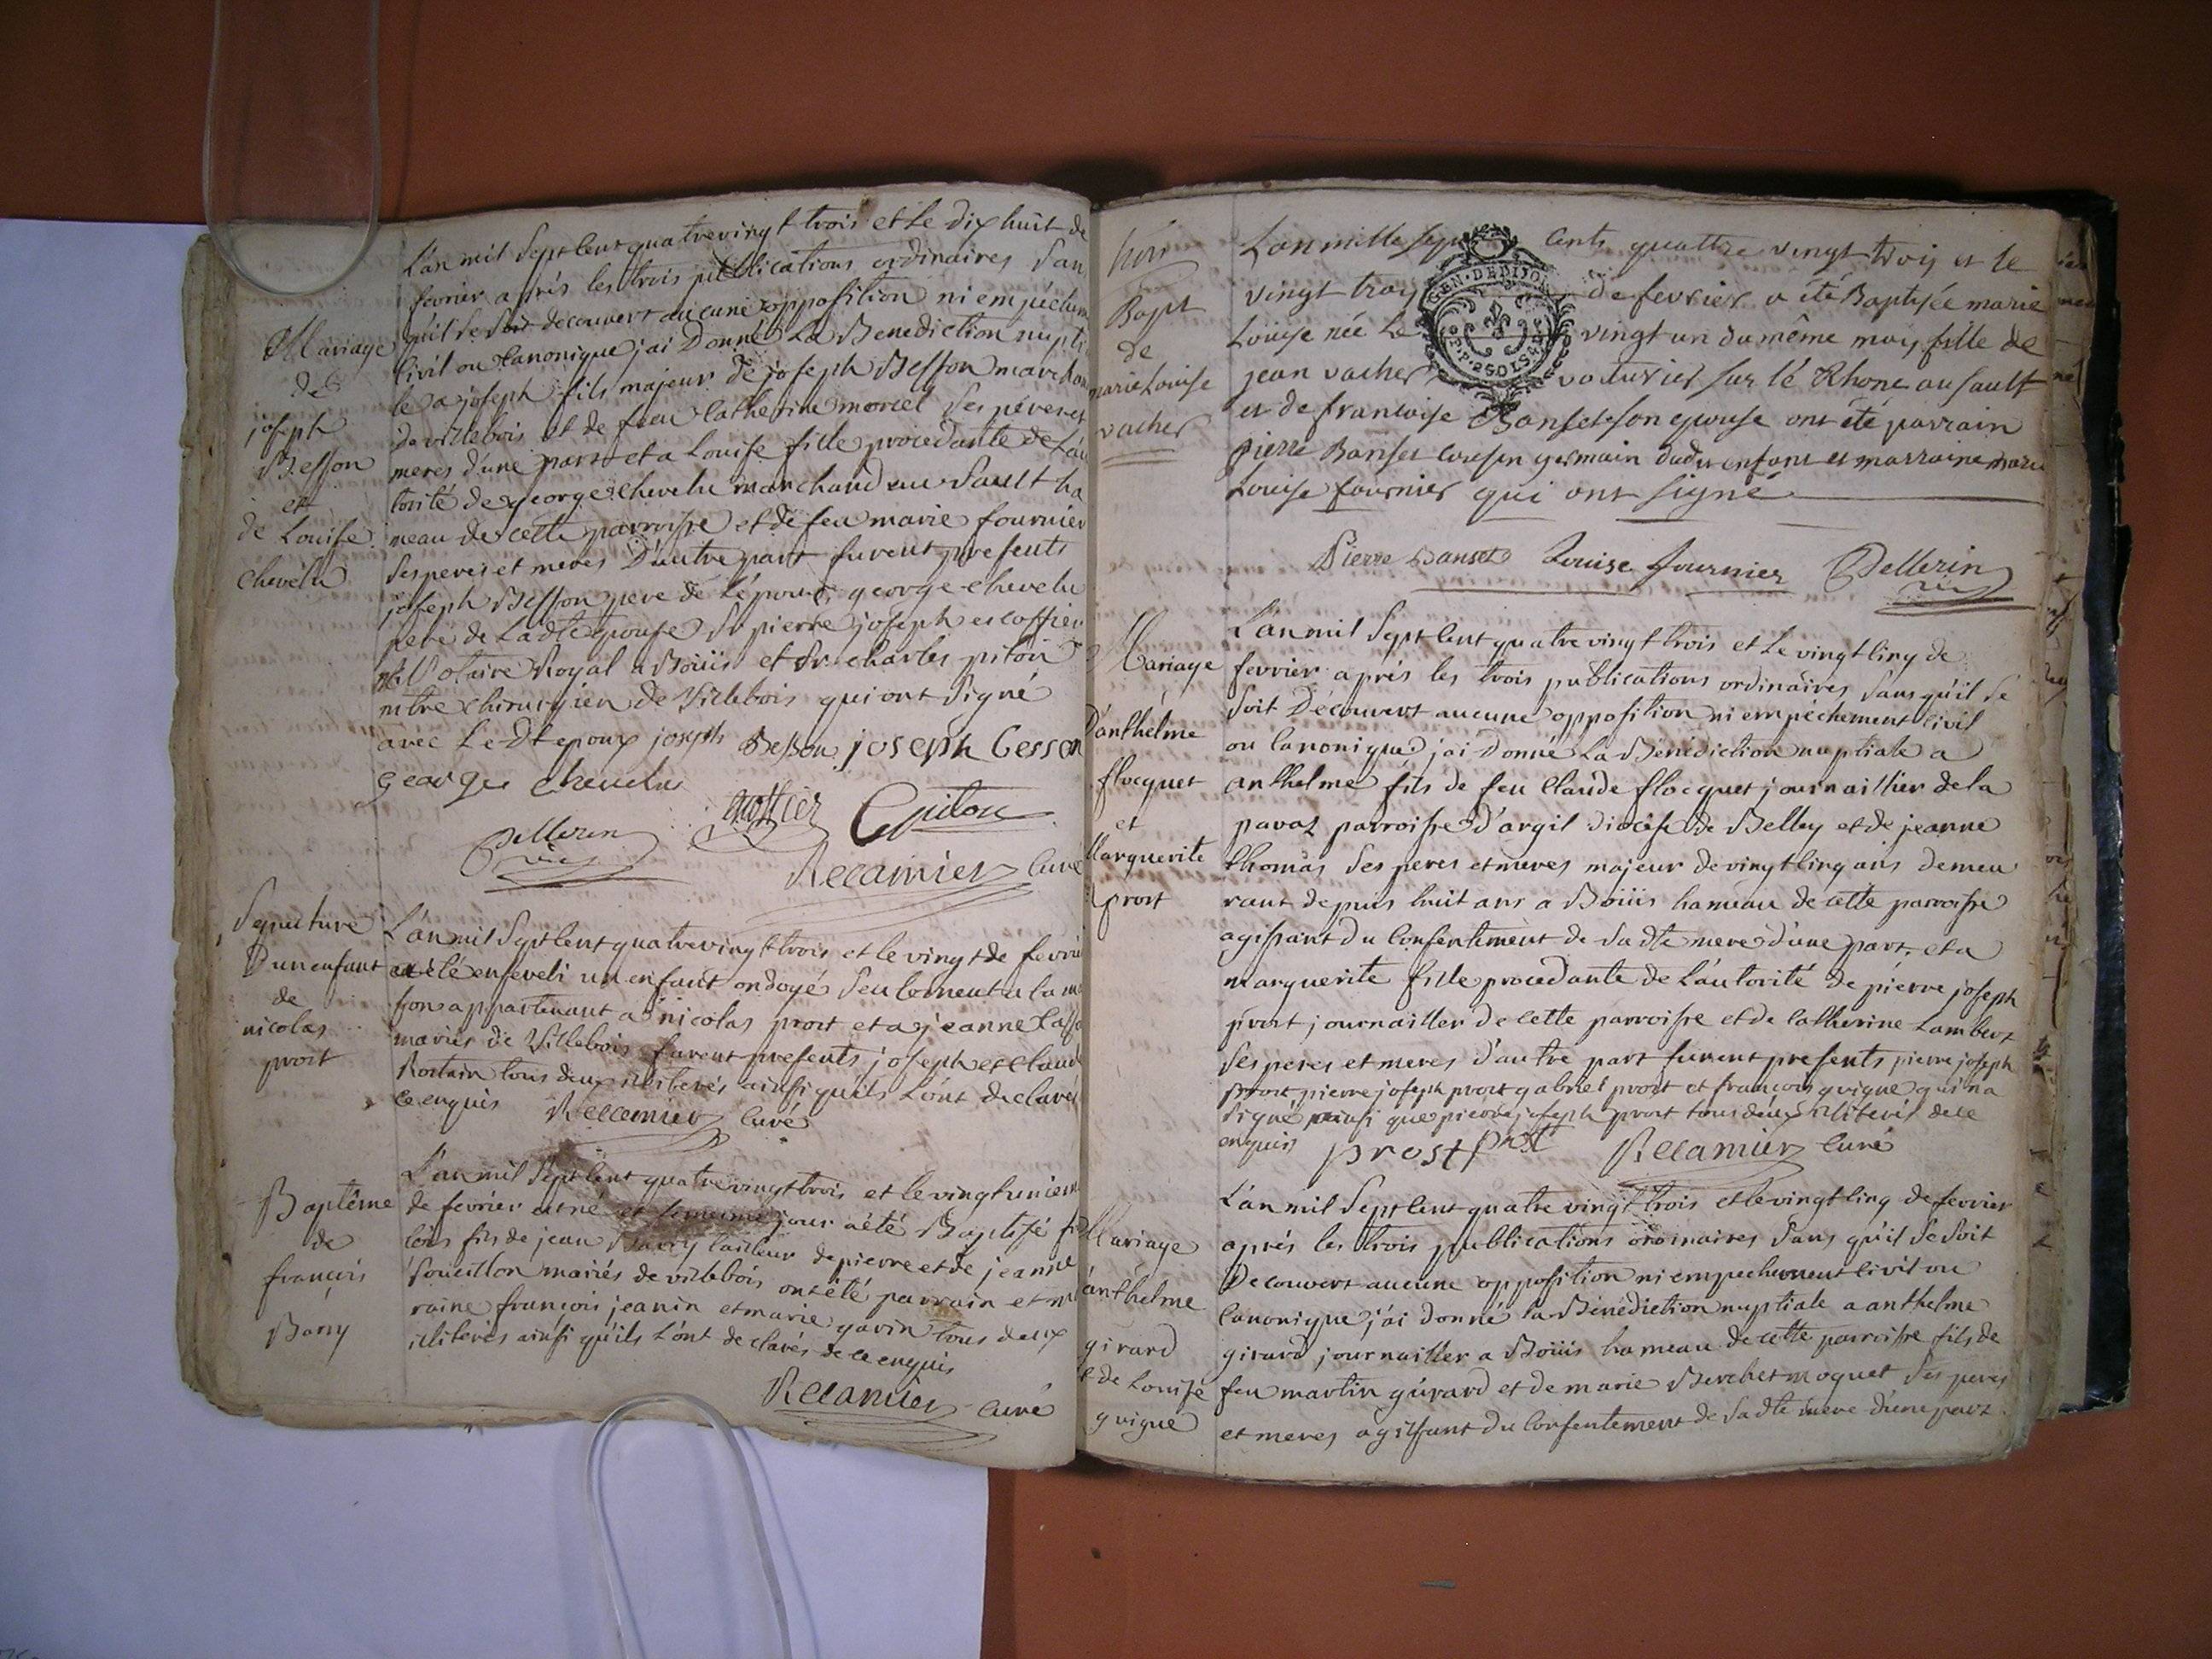 L'an mil Sept Cent quatrevingt trois et le dix huit de
fevrier après les trois publications ordinaires San
qu'il se soit decouvert aucune opposition ni empéchem
civil ou canonique j'ai Donné La Benediction nupti
le a joseph fils majeur de joseph Besson marchan
de villebois et de feue Catherine morcel Ses péres et
meres d'une part et a Louise fille procedante de L'au
torité de george chevelu marchand au Sault ha
meau de cette parroisse et de feu marie fournier
Ses peres et meres D'autre part furent presents
joseph Besson pere de L'époux, george chevelu
pere de Ladte epouse Sr pierre joseph escoffier
Notaire Royal a Boüis et Sr charles piton
mtre chirurgien de Villebois qui ont Signé
avec Le Dt epoux joseph Besson joseph besson
george chevelu
Pellerin vic
Cpiton
Recamier Curé
Mariage
de
joseph
Besson
et
de Louise
chevelu
Sepulture
D'un enfant
de
nicolas
prost
L'an mil Sept Cent quatrevingt trois et le vingt de fevri
a été enseveli un enfant ondoyé Seulement a la ma
son appartenant a nicolas prost et a jeanne
mariés de Villebois furent presents joseph et Claud
Rostain tous deux illiterés ainsi quils L'ont declaré
ce enquis Recamier Curé
Baptême
de
françois
Barry
L'an mil Sept Cent quatrevingt trois et le vingtuniem
de fevrier est né et le meme jour a été Baptisé f
cois fils de jean Barry tailleur de pierre et de jeanne
Soucillon mariés de villebois ont été parrain et m
raine françois jeanin et marie gavin tous deux
illiterés ainsi qu'ils L'ont declarés de ce enquis
Recamier curé
Bapt
de
marie Louise
vacher
L'an mille sept cents quattre vingt trois et le
vingt trois de fevrier a été Baptisée marie
Louise née Le vingt un du même mois fille de
jean vacher voiturier sur lé Rhone au sault
et de francoise Banset son epouse ont été parrain
pierre Banset cousin germain dudit enfant et marraine marie
Louise fournier qui ont signé
Pierre Banset Louise fournier Pellerin
vic
Mariage
D'anthelme
flocquet
et
Marguerite
prost
L'an mil Sept Cent quatre vingt trois et Le vingt Cinq de
fevrier aprés les trois publications ordinaires Sans qu'il Se
Soit Découvert aucune opposition ni empéchement Civil
ou Canonique, j'ai donné La Bénédiction nuptiale a
anthelme fils de feu Claude flocquet journaillier de la
pavaz parroisse d'argil diocése de Belley et de jeanne
thomas Ses peres et meres majeur de vingt Cinq ans demeu
rant depuis huit ans a Boüis hameau de cette parroisse
agissant du Consentement de Sadte mere d'une part, et a
marguerite fille procedante de L'autorité de pierre joseph
prost journailler de cette parroisse et de Catherine Lambert
Ses peres et meres d'autre part furent presents pierre joseph
prost, pierre joseph prost gabriel prost et françois guigue qui n'a
signé ainsi que pierre joseph prost tous deux illiterés de ce
enquis prost prost Recamier Curé
Mariage
d'anthelme
girard
et de Louise
guigue
L'an mil Sept Cent quatre vingt trois et le vingt Cinq de fevrier
aprés les trois publications ordinaires Sans qu'il Se Soit
Decouvert aucune opposition ni empechement civil ou
Canonique j'ai donné la Bénédiction nuptiale a anthelme
girard journailler a Boüis hameau de cette parroisse fils de
feu martin girard et de marie Berchet moquet Ses peres
et meres agissant du Consentement de Sadte mere d'une part